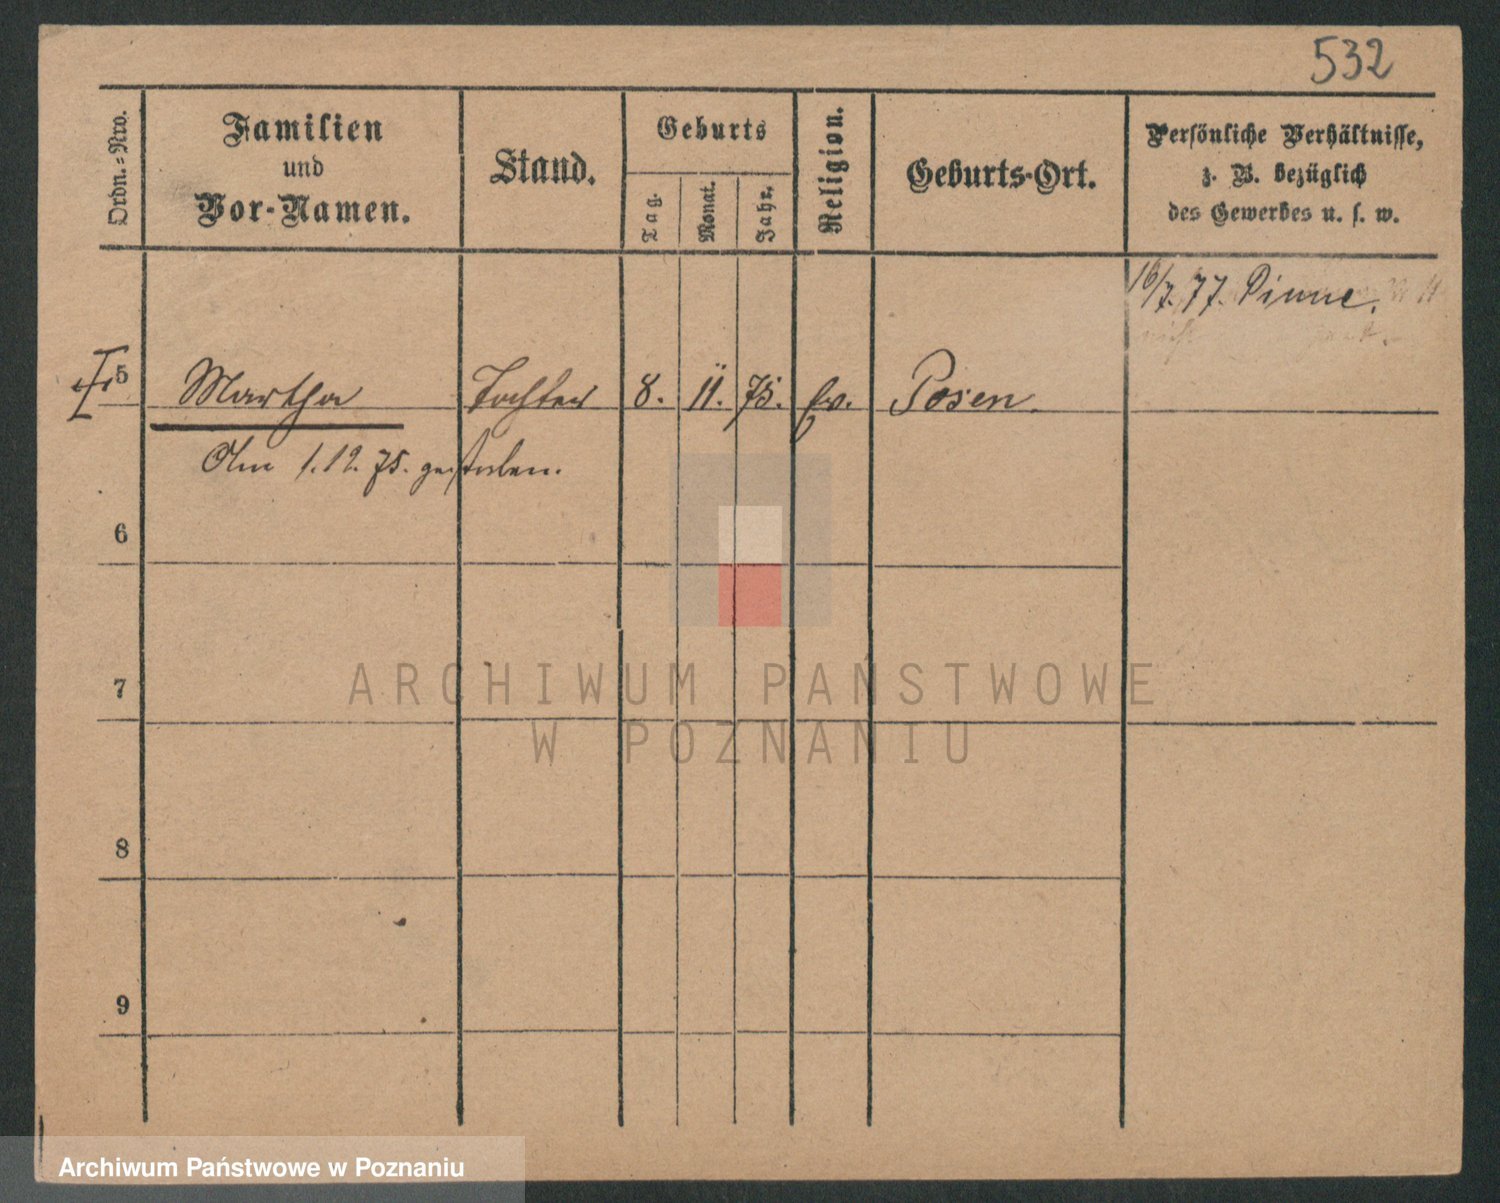 532
Ordn.=Nro.
Familien
und
Vor-Namen.
Stand.
Geburts
Tag.
Monat.
Jahr.
Religion.
Geburts-Ort.
Persönliche Verhältnisse,
z. B. bezüglich
des Gewerbes u. s. w.
16/7. 77. Pinne.
5 Martha Tochter 8. 11. 75. Ev. Posen.
Am 1.12.75. gestorben.
6
7
8
9
ARCHIWUM PAŃSTWOWE
W POZNANIU
Archiwum Państwowe w Poznaniu